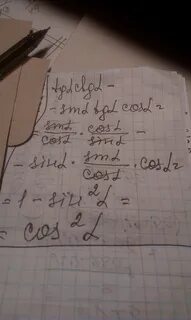 tgα ctgα -
- sinα tgα cosα =
= sinα/cosα · cosα/sinα -
- sinα · sinα/cosα · cosα =
= 1 - sin²α =
= cos²α